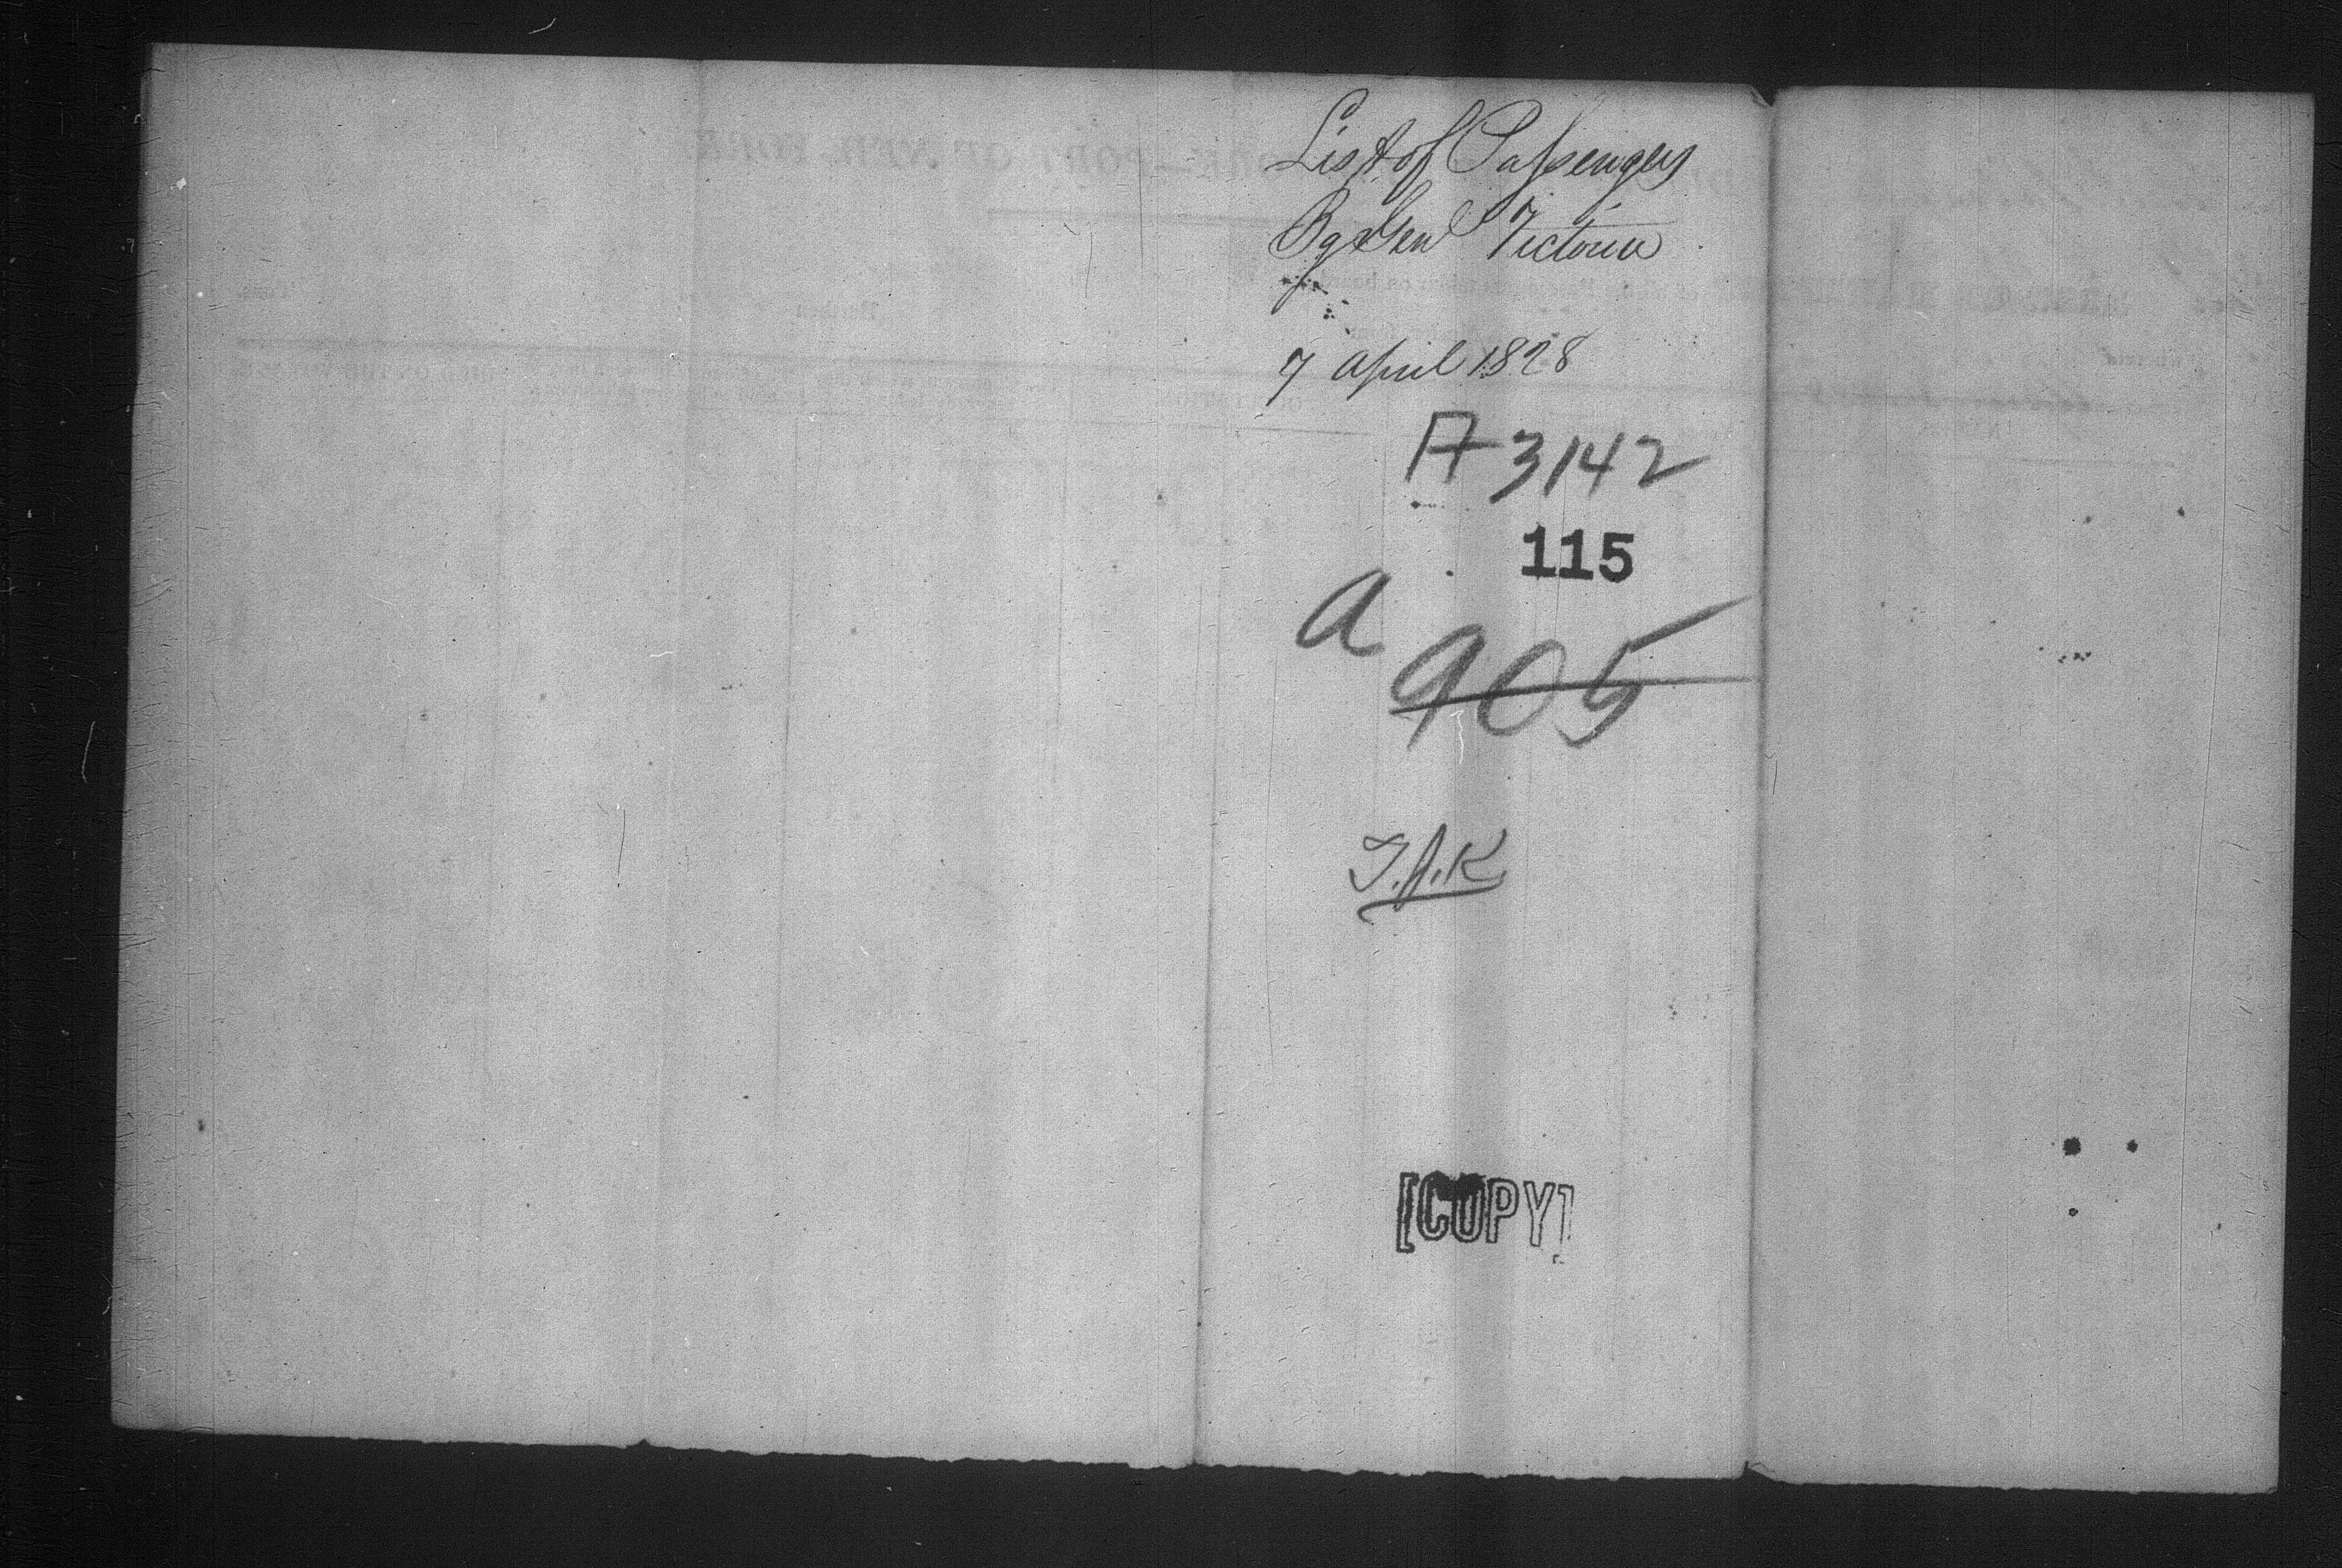 List of Passengers
Bg Gen Victoria
7 april 1828
A 3142
115
a
905
T.A.K
[COPY]